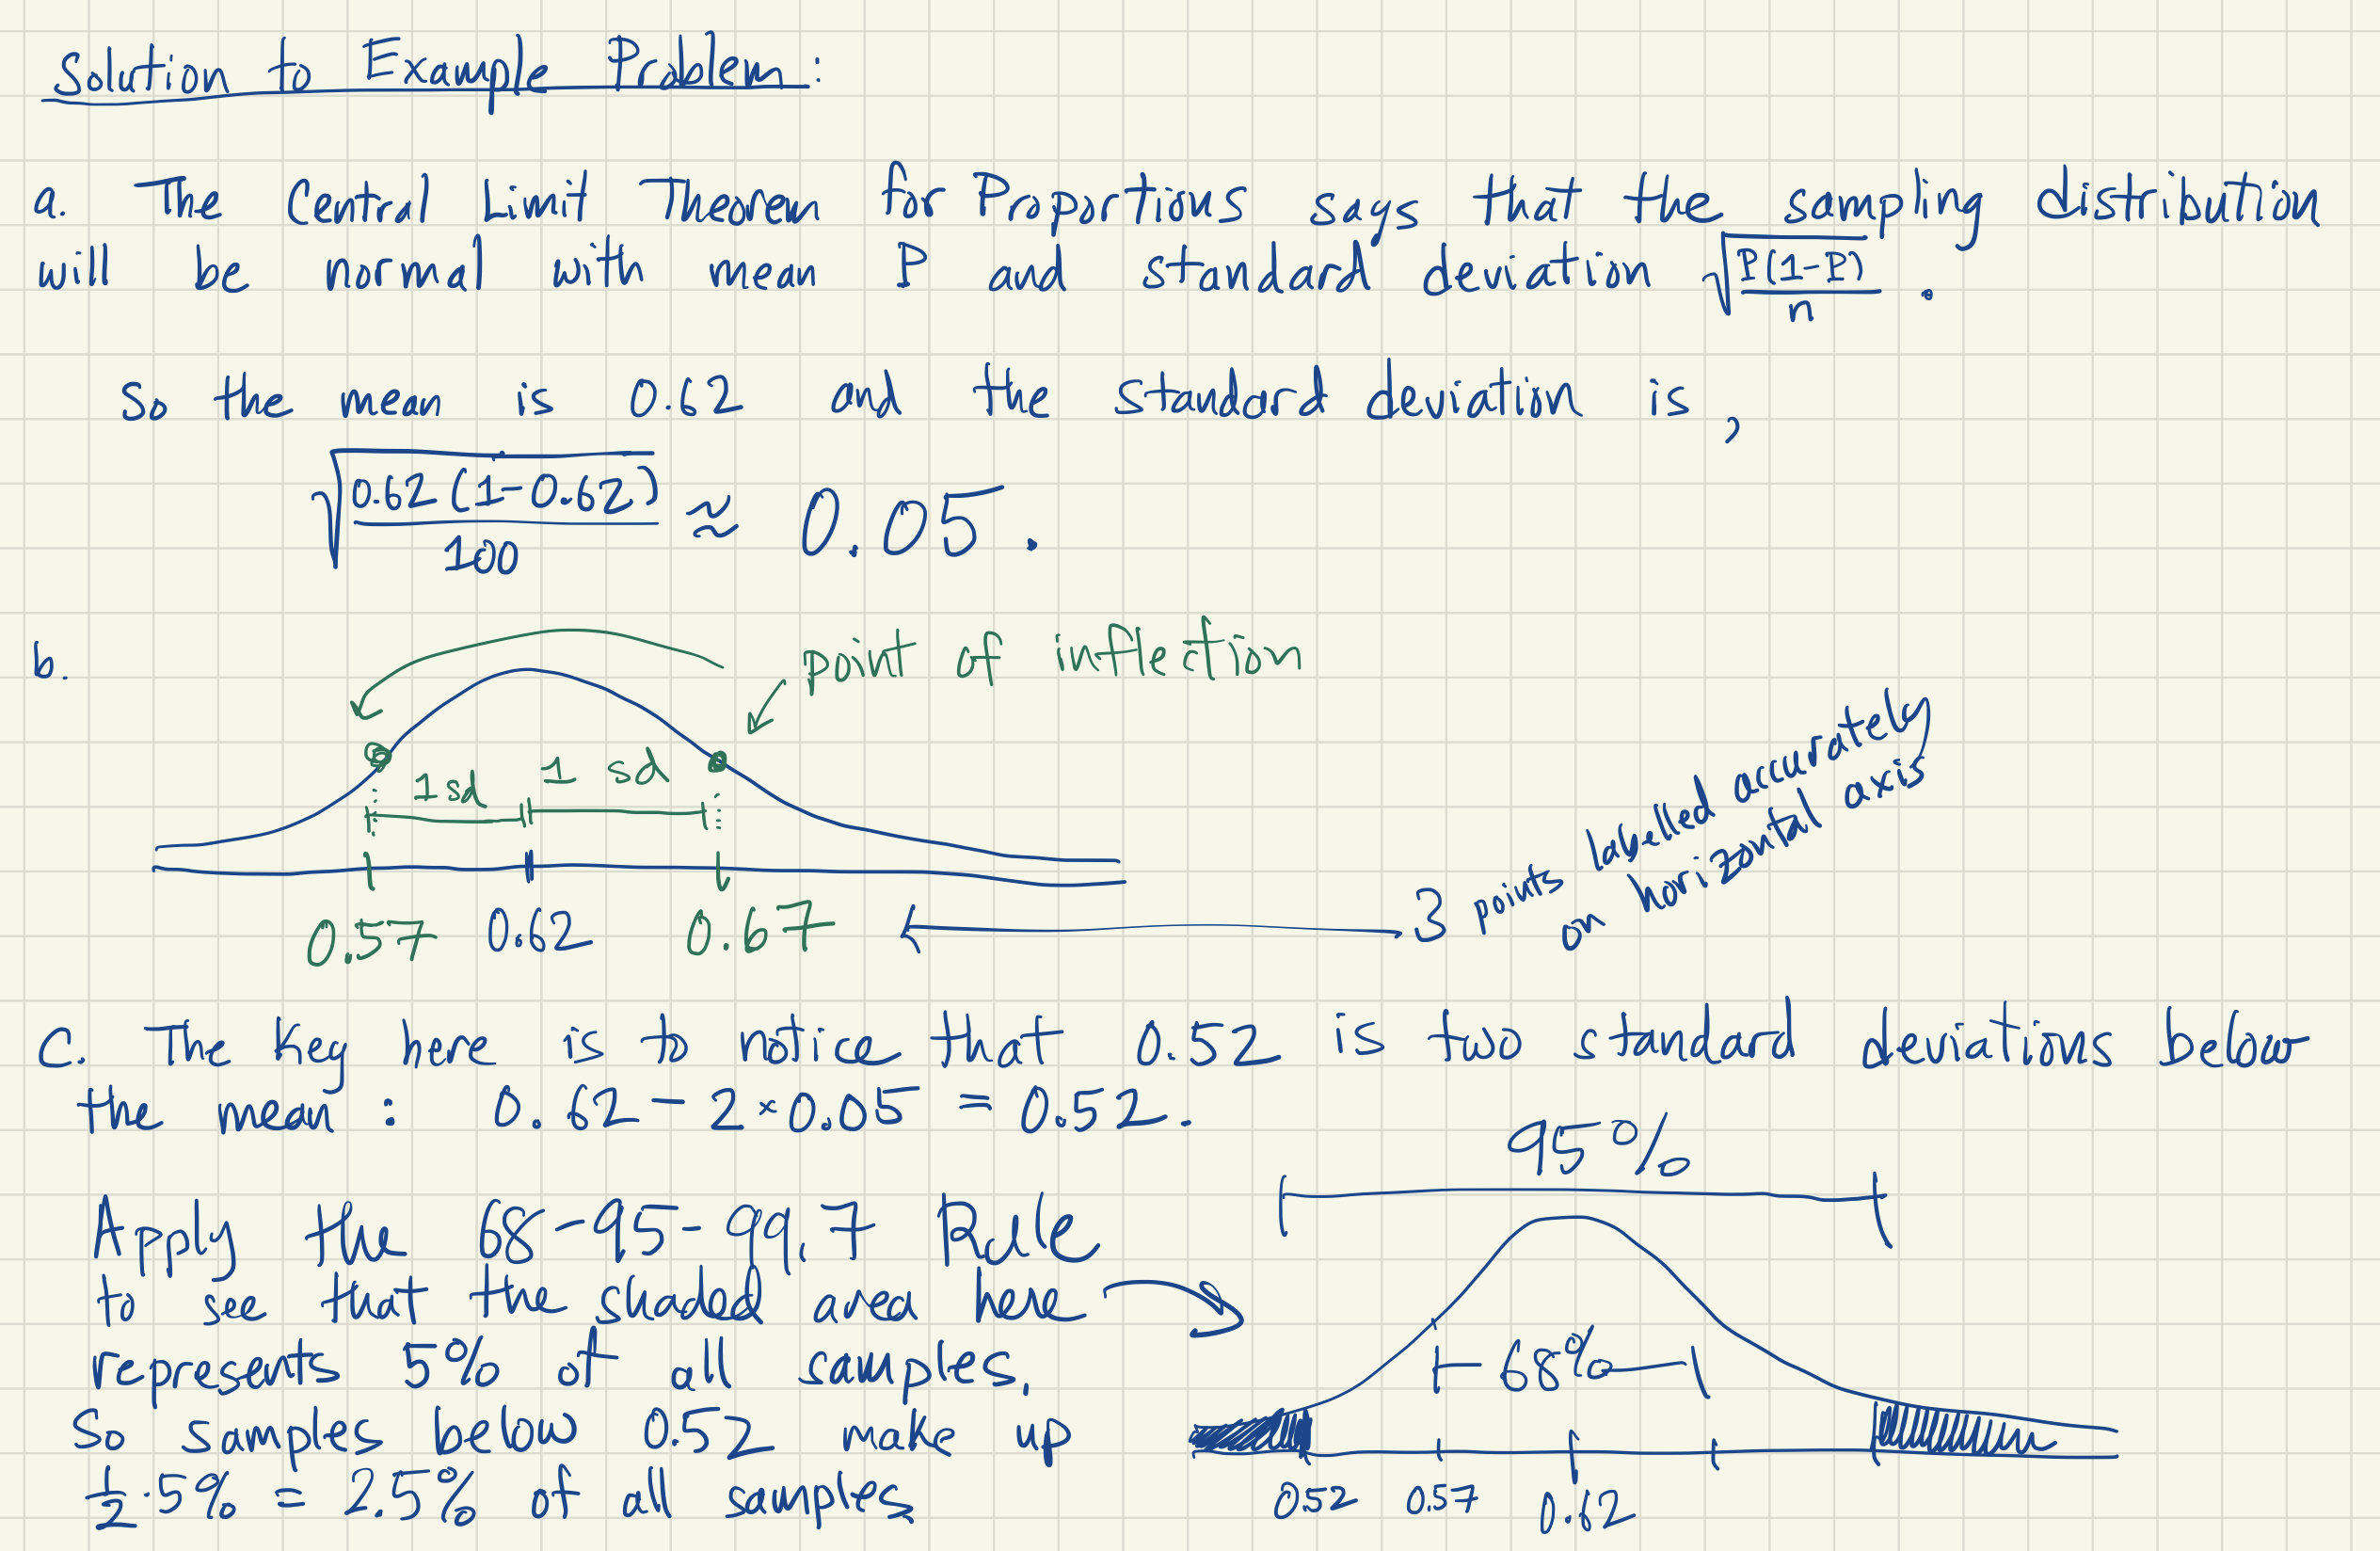 Solution to Example Problem:
a. The Central Limit Theorem for Proportions says that the sampling distribution
will be normal with mean P and standard deviation √(P(1-P)/n).
So the mean is 0.62 and the standard deviation is,
√(0.62(1-0.62)/100) ≈ 0.05.
b.
point of inflection
1sd 1 sd
0.57 0.62 0.67
3 points labelled accurately
on horizontal axis
c. The key here is to notice that 0.52 is two standard deviations below
the mean: 0.62 - 2×0.05 = 0.52.
95%
Apply the 68-95-99.7 Rule
to see that the shaded area here
represents 5% of all samples.
So samples below 0.52 make up
1/2·5% = 2.5% of all samples
68%
0.52 0.57 0.62